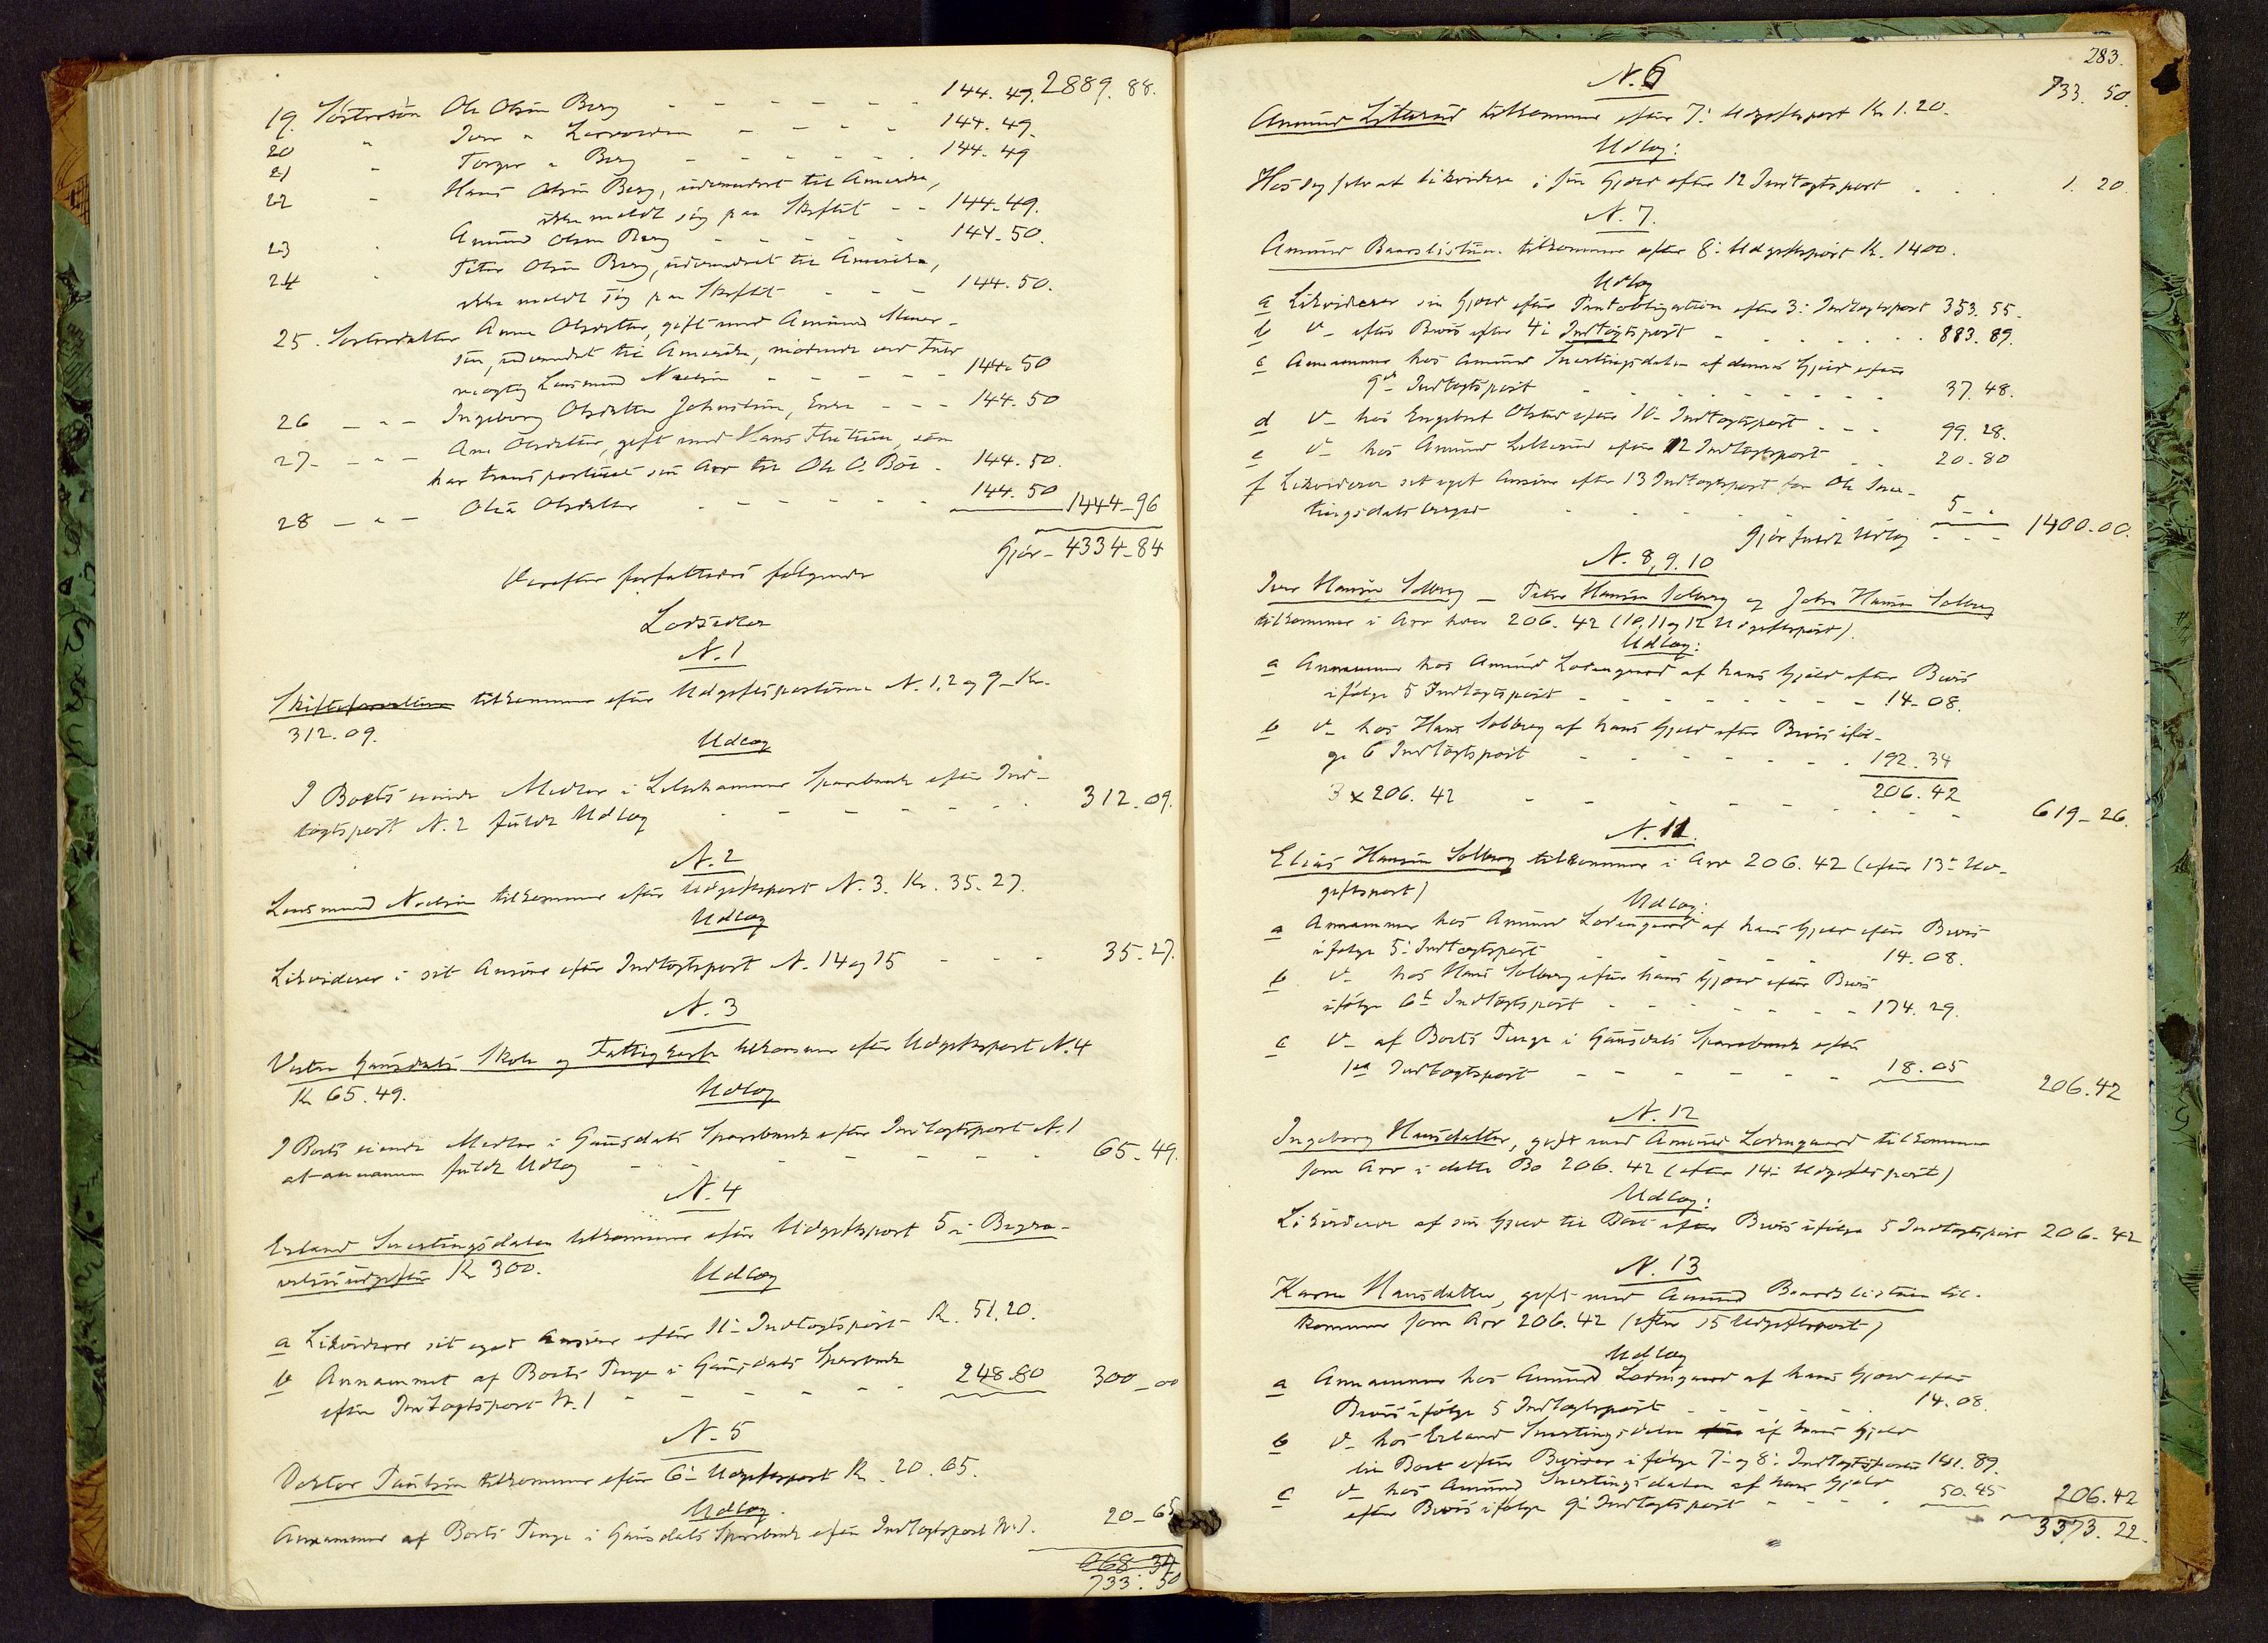 2889. 88.
19. Søstersøn Ole Olsen Berg - - - - - - 144. 49.
20 " Iver " - - - - 144. 49.
21 " Torger " Berg - - - - - 144. 49
22 " Hans Olsen Berg, udvandret til Amerika,
ikke meldt sig paa Skiftet - - 144. 49.
23 " Amund Olsen Berg - - - - - 144. 50.
24 " Peter Olsen Berg, udvandret til Amerika,
ikke meldt sig paa Skiftet - - - 144. 50.
25. Søsterdatter Anne Olsdatter, gift med Amund
sen, udvandret til Amerika, mødende ved Fuld
mægtig Lensmand Nielsen - - - - - 144. 50
26 - " - Ingeborg Olsdatter Enke - - - 144. 50
27 - " - Ane Olsdatter, gift med Hans som
har transporteret sin Arv til Ole O. Bøe - 144. 50.
28 - " - Olea Olsdatter - - - - - 144. 50 1444-96
Gjør - 4334-84
Derefter forfattedes følgende
Lodsedler
N. 1
Skifteforvalteren tilkommer efter Udgiftsposterne N. 1, 2 og 9 - Kr.
312. 09.
Udlæg
I Boets eiende Midler i Lillehammer Sparebank efter Ind-
tægtspost N. 2 fuldt Udlæg - - - - - 312. 09.
N. 2
Lensmand Nielsen tilkommer efter Udgiftspost N. 3. Kr. 35. 27.
Udlæg
Likviderer i sit Ansvar efter Indtægtspost N. 14 og 15 - - - 35. 27.
N. 3
Vestre Gausdals Skole og Fattigkasse tilkommer efter Udgiftspost N. 4
Kr 65. 49.
Udlæg
I Boets eiende Midler i Gausdals Sparebank efter Indtægtspost N. 1
at annamme fuldt Udlæg - - - - - 65. 49.
N. 4
Erland Svartingsdalen tilkommer efter Udgiftspost 5 i Begra-
velsesudgifter Kr 300.
Udlæg
a Likviderer sit eget Ansvar efter 11te Indtægtspost Kr. 51. 20.
b Annammet af Boets Penge i Gausdals Sparebank
efter Indtægtspost N. 1 - - - - - 248. 80 300-00
N. 5
Doktor Paulsen tilkommer efter 6te Udgiftspost Kr. 20. 65.
Udlæg.
Annammer af Boets Penge i Gausdals Sparebank efter Indtægtspost N. 1. 20-65
733. 50
283.
N. 6
733. 50.
Amund tilkommer efter 7de Udgiftspost Kr 1. 20.
Udlæg:
Hos sig selv at likvidere i sin Gjæld efter 12 Indtægtspost - - - 1. 20
N. 7.
Amund Baarslistuen tilkommer efter 8de Udgiftspost Kr. 1400.
Udlæg
a Likviderer sin Gjæld efter Panteobligation efter 3die Indtægtspost 353. 55.
b d- efter Bevis efter 4de Indtægtspost - - - - - 883. 89.
c Annammer hos Amund Svartingsdalen af dennes Gjæld efter
9de Indtægtspost - - - - - - 37. 48.
d d- hos Engebret Olstad efter 10- Indtægtspost - - - 99. 28.
e d- hos Amund efter 12 Indtægtspost - - 20. 80
f Likviderer sit eget Ansvar efter 13 Indtægtspost for Ole Svar-
tingsdals - - - - - 5 - .
Gjør fuldt Udlæg - - - 1400. 00.
N. 8, 9. 10
Iver Hansen Solberg - Peter Hansen Solberg og John Hansen Solberg
tilkommer i Arv hver 206. 42 (10, 11 og 12 Udgiftspost).
Udlæg:
a Annammer hos Amund Lodengaard af hans Gjæld efter Bevis
ifølge 5 Indtægtspost - - - - - - 14. 08.
b d- hos Hans Solberg af hans Gjæld efter Bevis iføl-
ge 6 Indtægtspost - - - - - - 192. 34
206. 42
3 x 206. 42 - - - - - - 619-26.
N. 11.
Elias Hansen Solberg tilkommer i Arv 206. 42 (efter 13de Ud-
giftspost)
Udlæg:
a Annammer hos Amund Lodengaard af hans Gjæld efter Bevis
ifølge 5te Indtægtspost - - - - 14. 08.
b d- hos Hans Solberg efter hans Gjæld efter Bevis
ifølge 6te Indtægtspost - - - - - 174. 29.
c d- af Boets Penge i Gausdals Sparebank efter
1ste Indtægtspost - - - - - - 18. 05
206. 42
N. 12
Ingeborg Hansdatter, gift med Amund Lodengaard tilkommer
som Arv i dette Bo 206. 42 (efter 14de Udgiftspost)
Udlæg:
Likviderer af sin Gjæld til Boet efter Bevis ifølge 5 Indtægtspost 206. 42
N. 13
Karen Hansdatter, gift med Amund Baarslistuen til-
kommer som Arv 206. 42 (efter 15 Udgiftspost)
Udlæg
a Annammer hos Amund Lodengaard af hans Gjæld efter
Bevis ifølge 5 Indtægtspost - - - - - 14. 08.
b d- hos Erland Svartingsdalen af hans Gjæld
til Boet efter Beviser ifølge 7de og 8de Indtægtsposter 141. 89.
c d- hos Amund Svartingsdalen af hans Gjæld
efter Bevis ifølge 9de Indtægtspost - - - - 50. 45 206. 42
3373. 22.